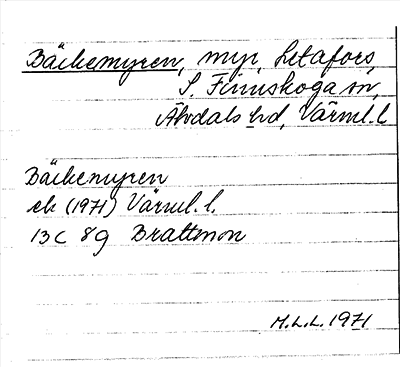 Bäckemyren, myr, Letafors,
S. Finnskoga sn,
Älvdals hd, Värml. l
Bäckemyren
ek (1971) Värml. l.
13C 8g Brattmon
M.L.L. 1971